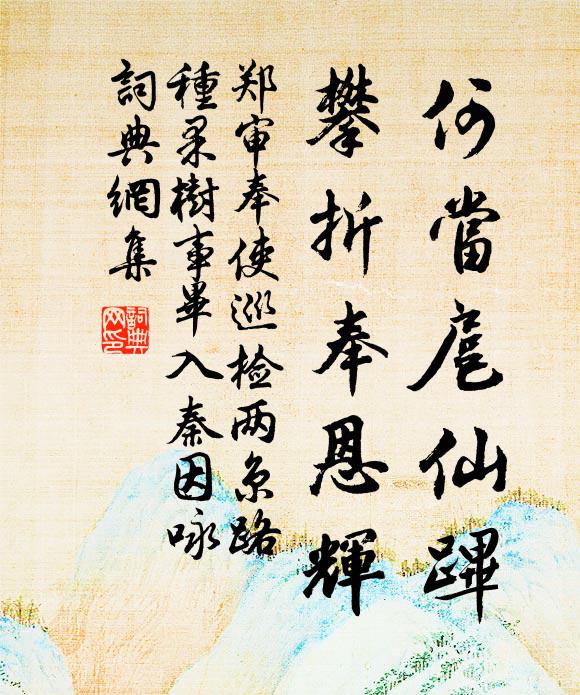 何當扈仙蹕
攀折奉恩輝
郑审奉使巡检两京路
種果樹事畢入秦因咏
詞典網集
詞典
网印